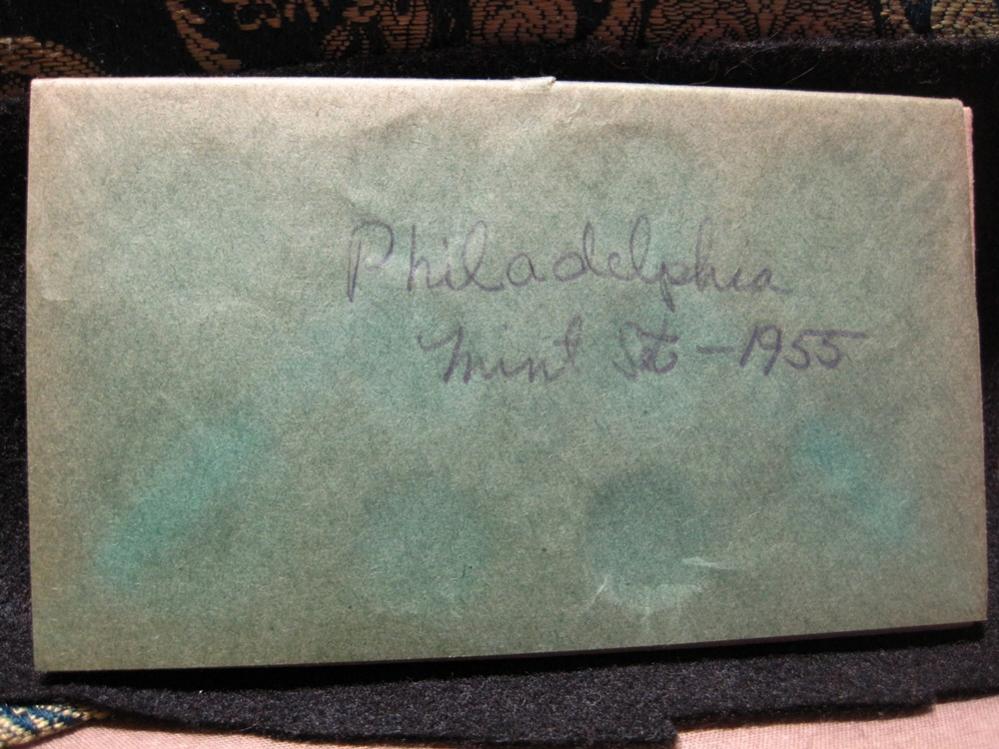 Philadelphia
Mint Set - 1955